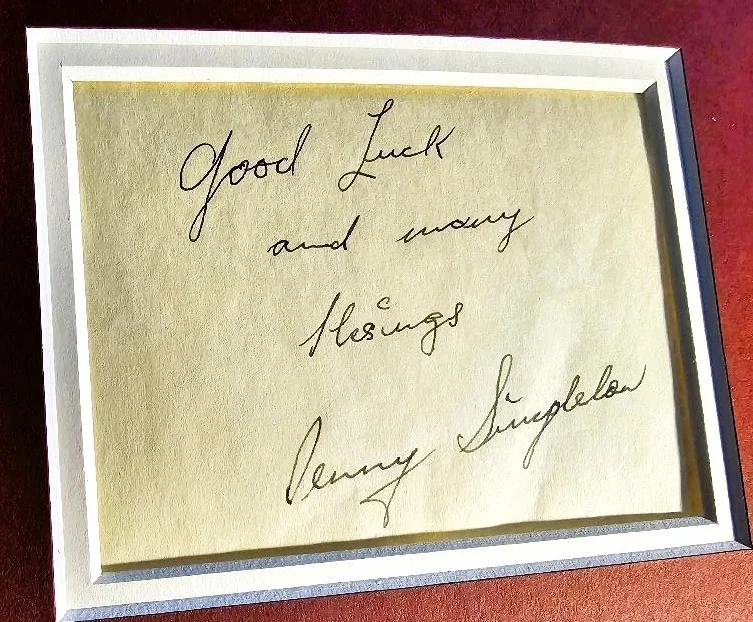 Good Luck
and many
Blessings
Penny Singleton